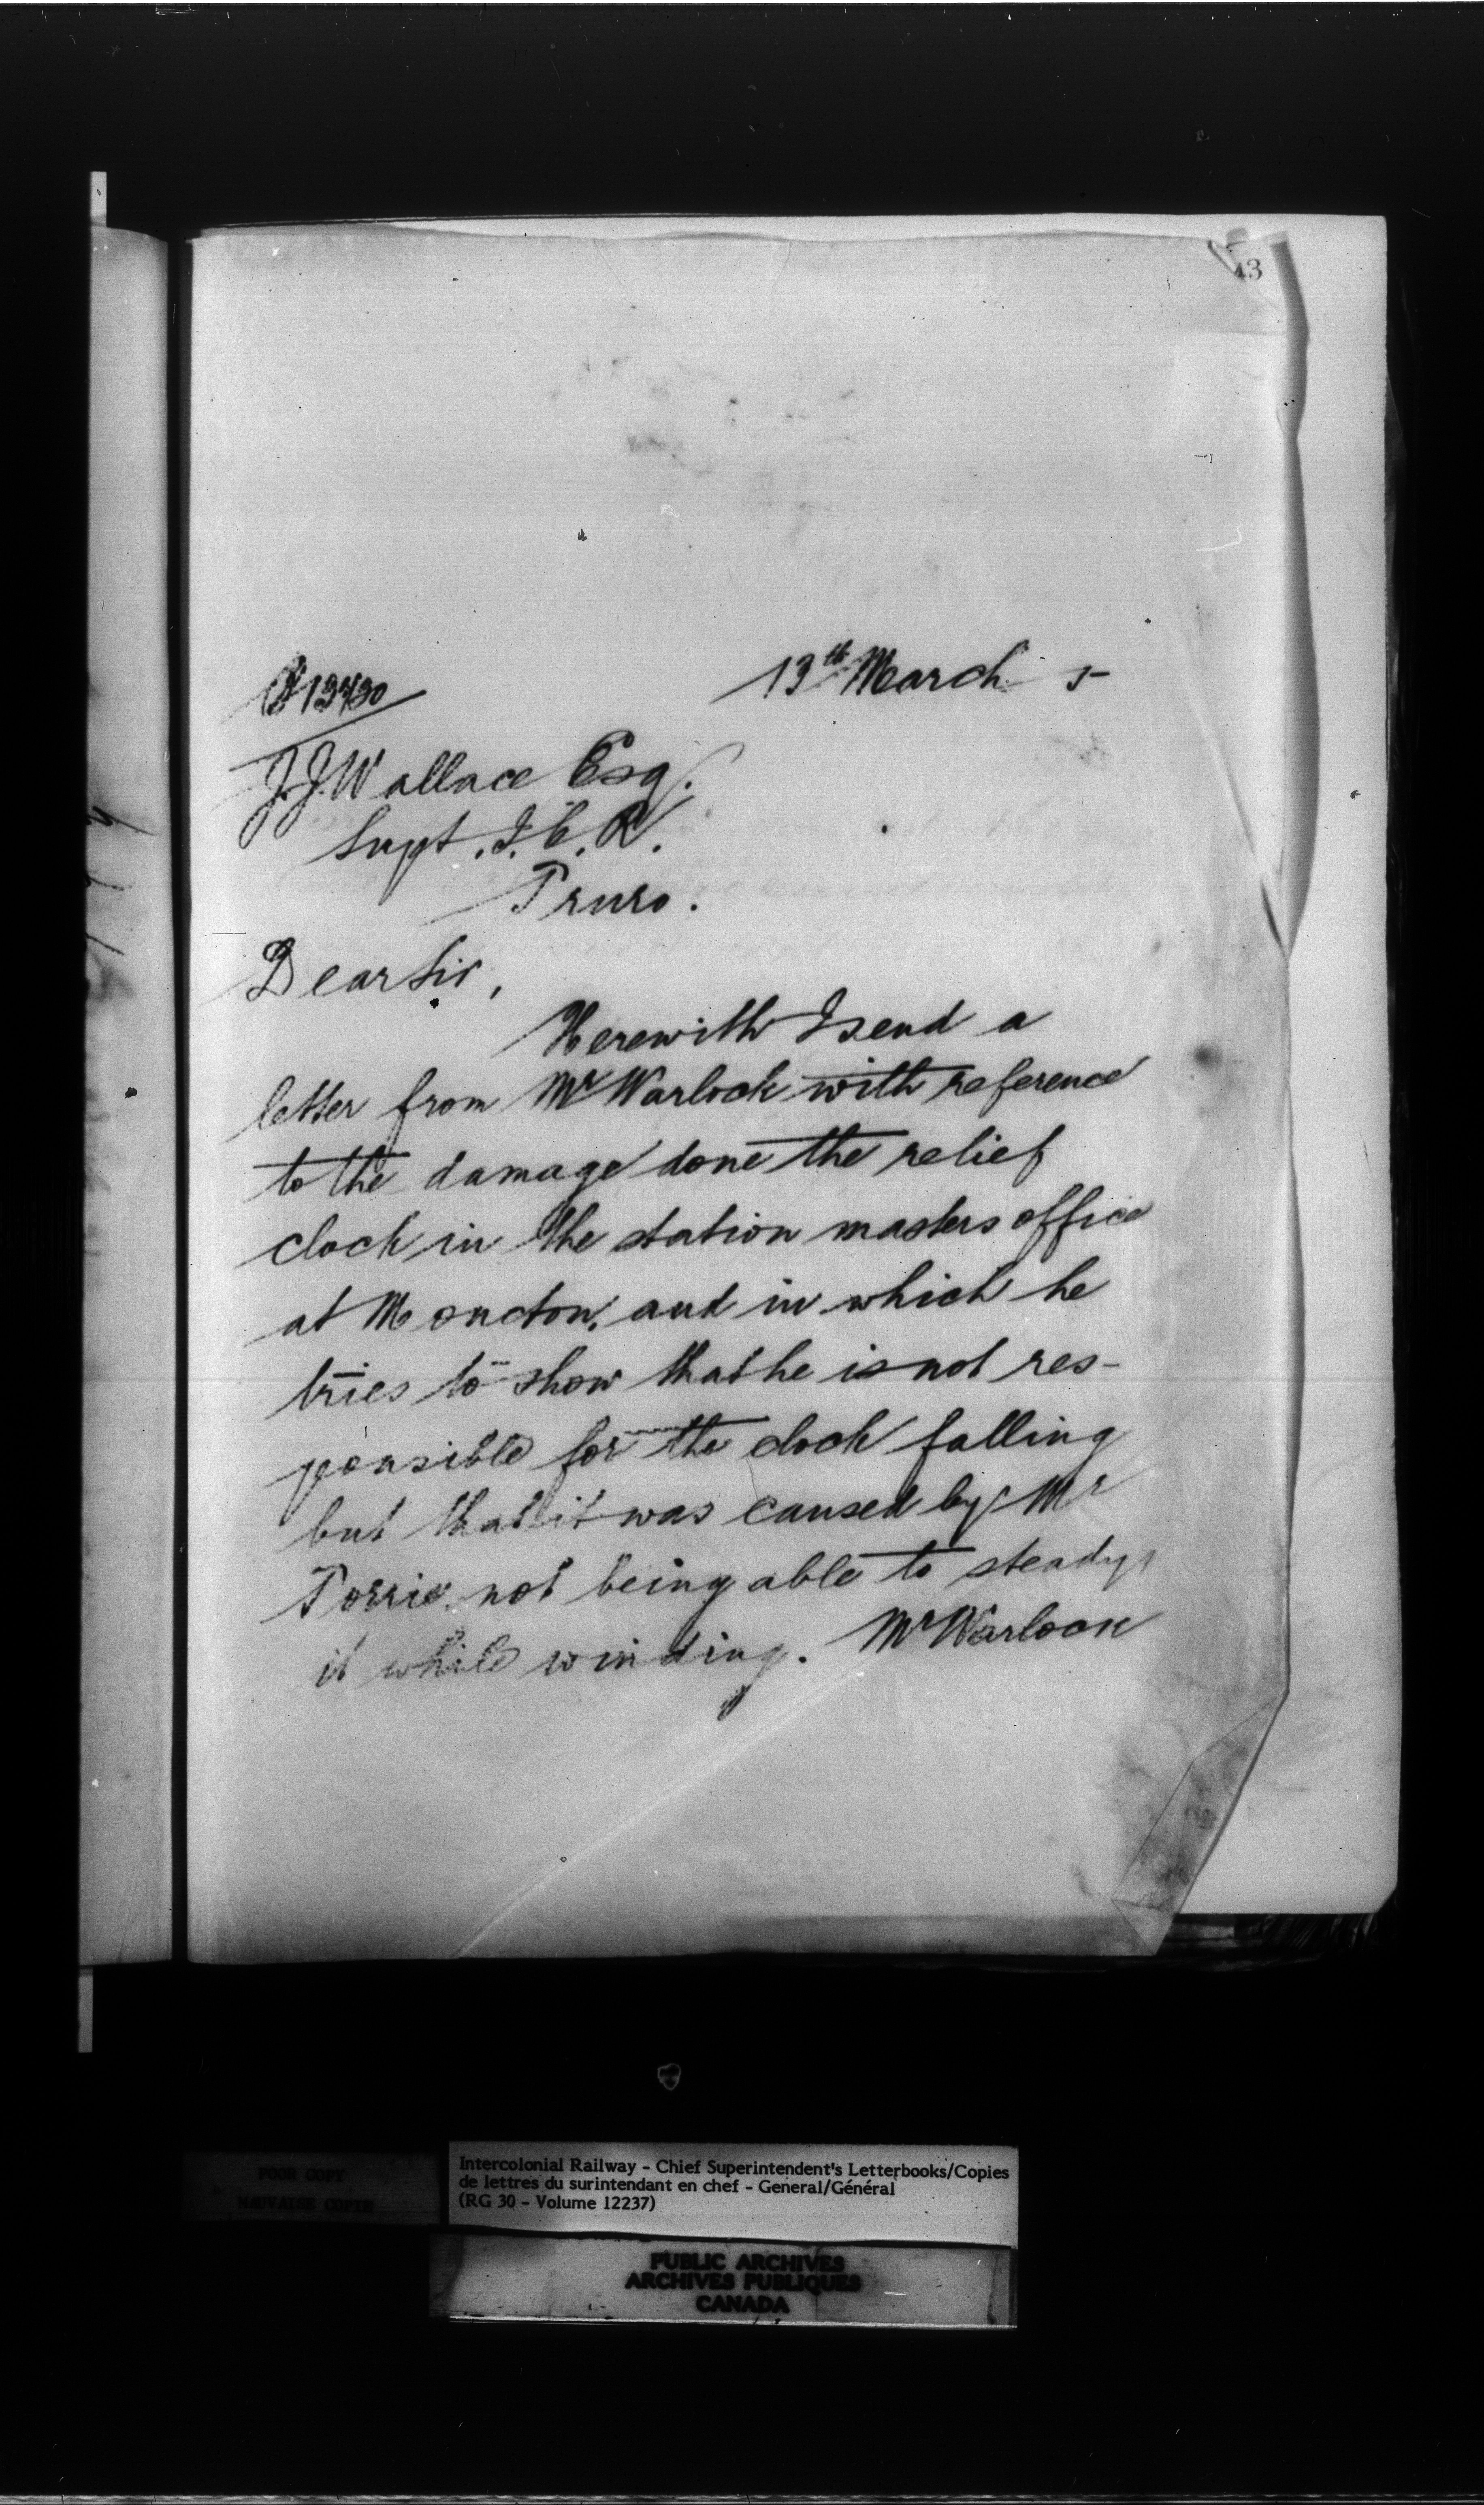 43
13th March 5
13430
J.J. Wallace Esq.
Supt. I.C.R.
Truro.
Dear Sir,
Herewith I send a
letter from Mr Warlock with reference
to the damage done the relief
clock in the station masters office
at Moncton, and in which he
tries to show that he is not res-
ponsible for the clock falling
but that it was caused by Mr
Torrie not being able to steady
it while winding. Mr Warlock
POOR COPY
MAUVAISE COPIE
Intercolonial Railway - Chief Superintendent's Letterbooks/Copies
de lettres du surintendant en chef - General/Général
(RG 30 - Volume 12237)
PUBLIC ARCHIVES
ARCHIVES PUBLIQUES
CANADA